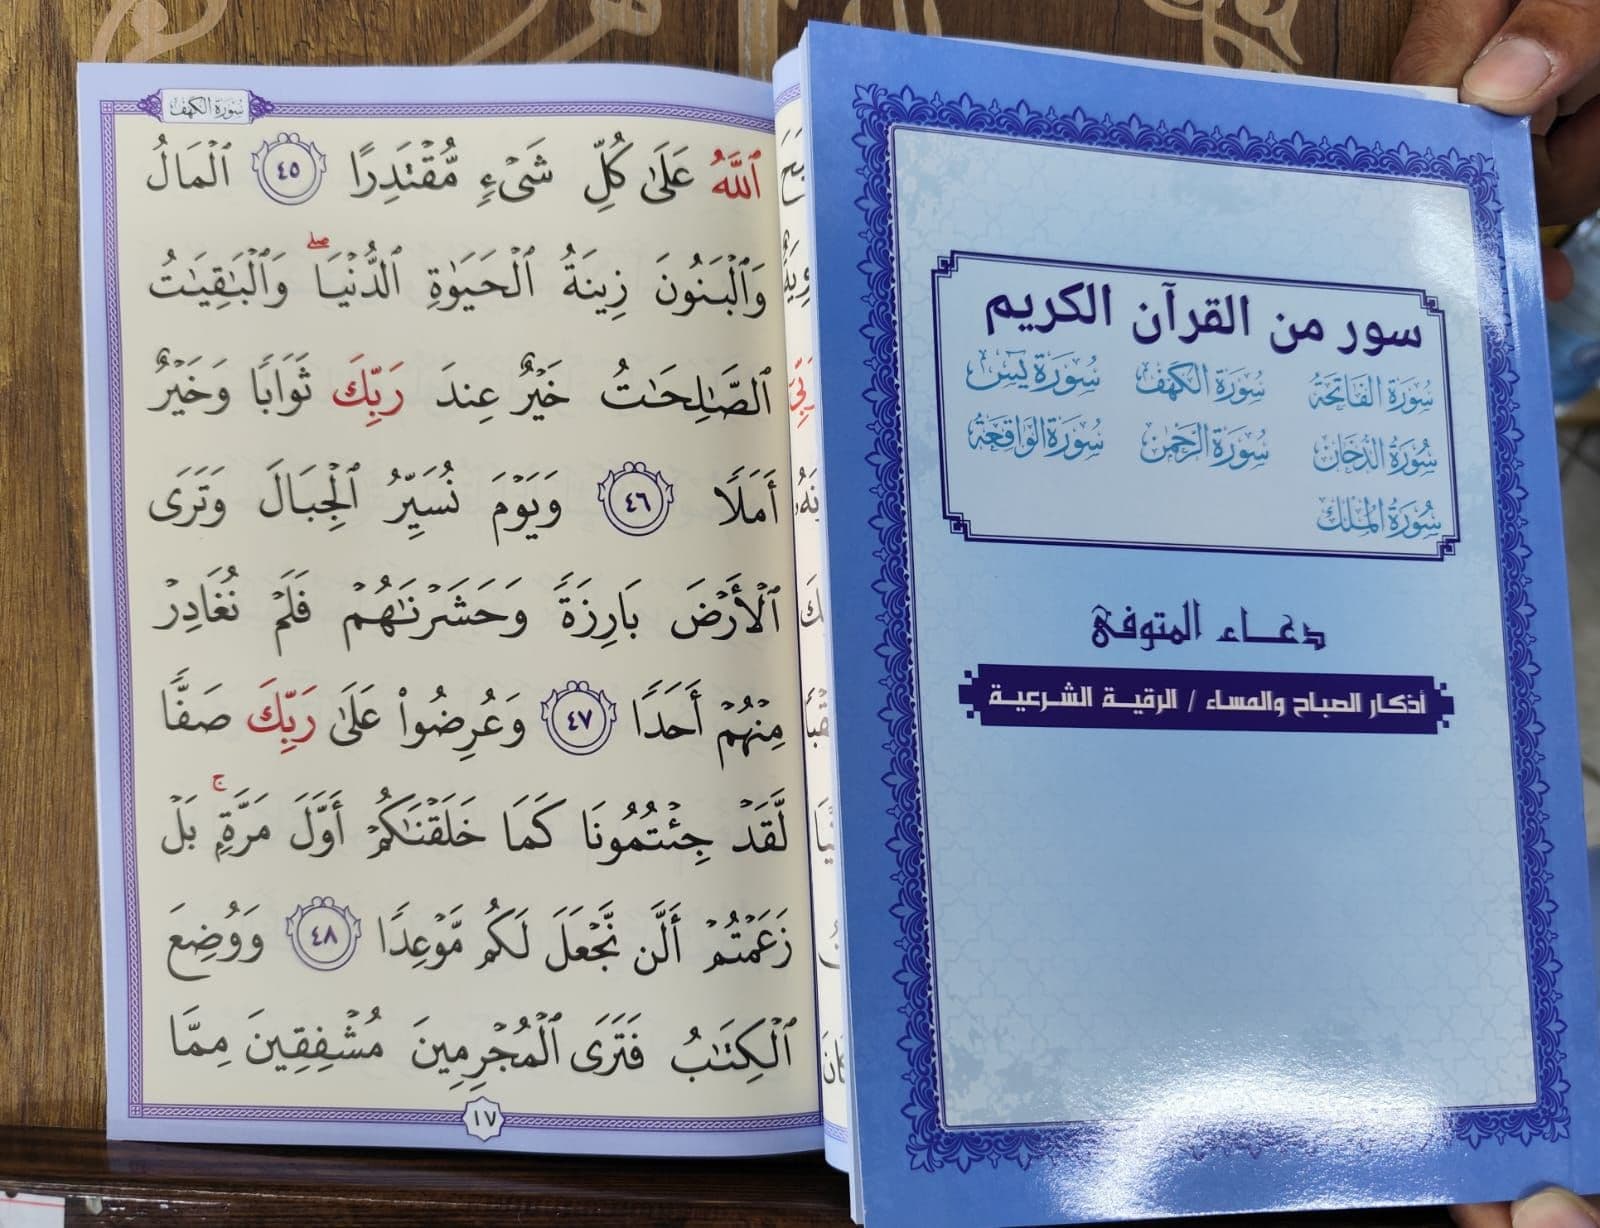 سورة الكهف
ٱللَّهُ عَلَىٰ كُلِّ شَىْءٍ مُّقْتَدِرًا ٤٥ ٱلْمَالُ
وَٱلْبَنُونَ زِينَةُ ٱلْحَيَوٰةِ ٱلدُّنْيَا ۖ وَٱلْبَـٰقِيَـٰتُ
ٱلصَّـٰلِحَـٰتُ خَيْرٌ عِندَ رَبِّكَ ثَوَابًا وَخَيْرٌ
أَمَلًا ٤٦ وَيَوْمَ نُسَيِّرُ ٱلْجِبَالَ وَتَرَى
ٱلْأَرْضَ بَارِزَةً وَحَشَرْنَـٰهُمْ فَلَمْ نُغَادِرْ
مِنْهُمْ أَحَدًا ٤٧ وَعُرِضُوا۟ عَلَىٰ رَبِّكَ صَفًّا
لَّقَدْ جِئْتُمُونَا كَمَا خَلَقْنَـٰكُمْ أَوَّلَ مَرَّةٍۭ ۚ بَلْ
زَعَمْتُمْ أَلَّن نَّجْعَلَ لَكُم مَّوْعِدًا ٤٨ وَوُضِعَ
ٱلْكِتَـٰبُ فَتَرَى ٱلْمُجْرِمِينَ مُشْفِقِينَ مِمَّا
١٧
سور من القرآن الكريم
سُورَةُ الفَاتِحَةِ سُورَةُ الكَهْفِ سُورَةُ يسٓ
سُورَةُ الدُّخَانِ سُورَةُ الرَّحْمٰنِ سُورَةُ الوَاقِعَةِ
سُورَةُ المُلْكِ
دعاء المتوفى
أذكار الصباح والمساء / الرقية الشرعية